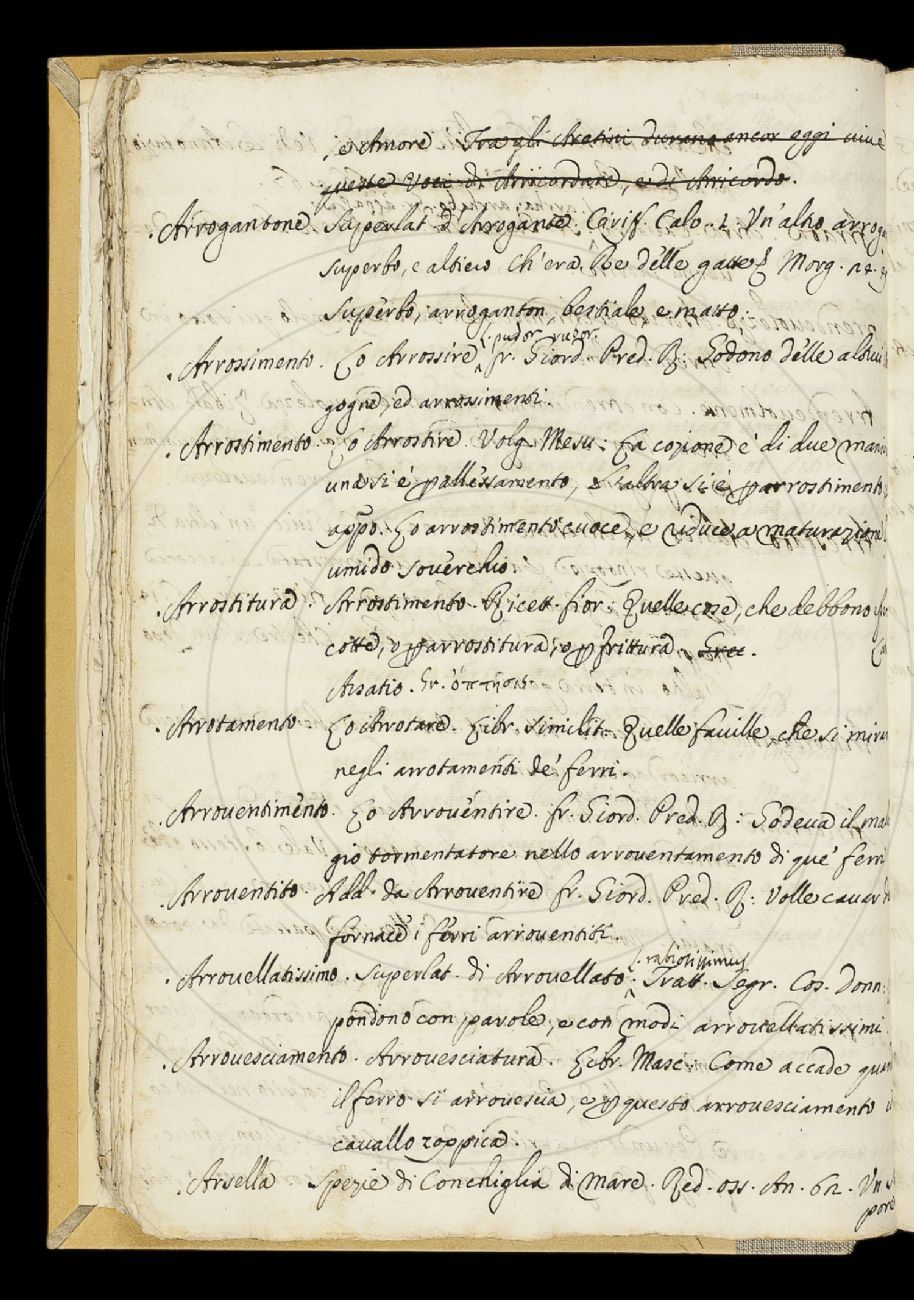 , e Amore Tra gli Aretini durano ancor oggi vive
queste voci di Arricordare, e di Arricordo.
Arrogantone. Superlat. d'Arrogante. Ciriff. Calv. 1. Un'altro arroga
superbo, e altiero ch'era Re delle gatte. Morg. 24.
superbo, arroganton, bestiale e matto.
pudor, rubor.
Arrossimento. Lo Arrossire. fr. Giord. Pred. R. Godono delle altrui
gogne, ed arrossimenti.
Arrostimento. Lo Arrostire. Volg. Mesu. La cozione è di due mani
una si è p allessamento, e l'altra si è p arrostimento
appo. Lo arrostimento cuoce, e riduce a maturazione
umido soverchio.
Arrostitura. Arrostimento. Ricett. fior. Quelle cose, che debbono
cotte, o p arrostitura, o p frittura. Grec.
Assatio. Gr. ὄπτησις
Arrotamento. Lo Arrotare. Libr. similit. Quelle faville, che si mira
negli arrotamenti de' ferri.
Arroventimento. Lo Arroventire. fr. Giord. Pred. R. Godeva il mal
gio tormentatore nello arroventamento di que' ferri
Arroventito. Add. da Arroventire fr. Giord. Pred. R. Volle cavar
fornace i ferri arroventiti.
rabiosissimus
Arrovellatissimo. Superlat. di Arrovellato. Tratt. Segr. Cos. Donn.
pondono con parole, e con modi arrovellatissimi
Arrovesciamento. Arrovesciatura. Libr. Masc. Come accade quan
il ferro si arrovescia, e p questo arrovesciamento
cavallo zoppica.
Arsella Spezie di Conchiglia di mare. Red. oss. An. 62. Un
pore